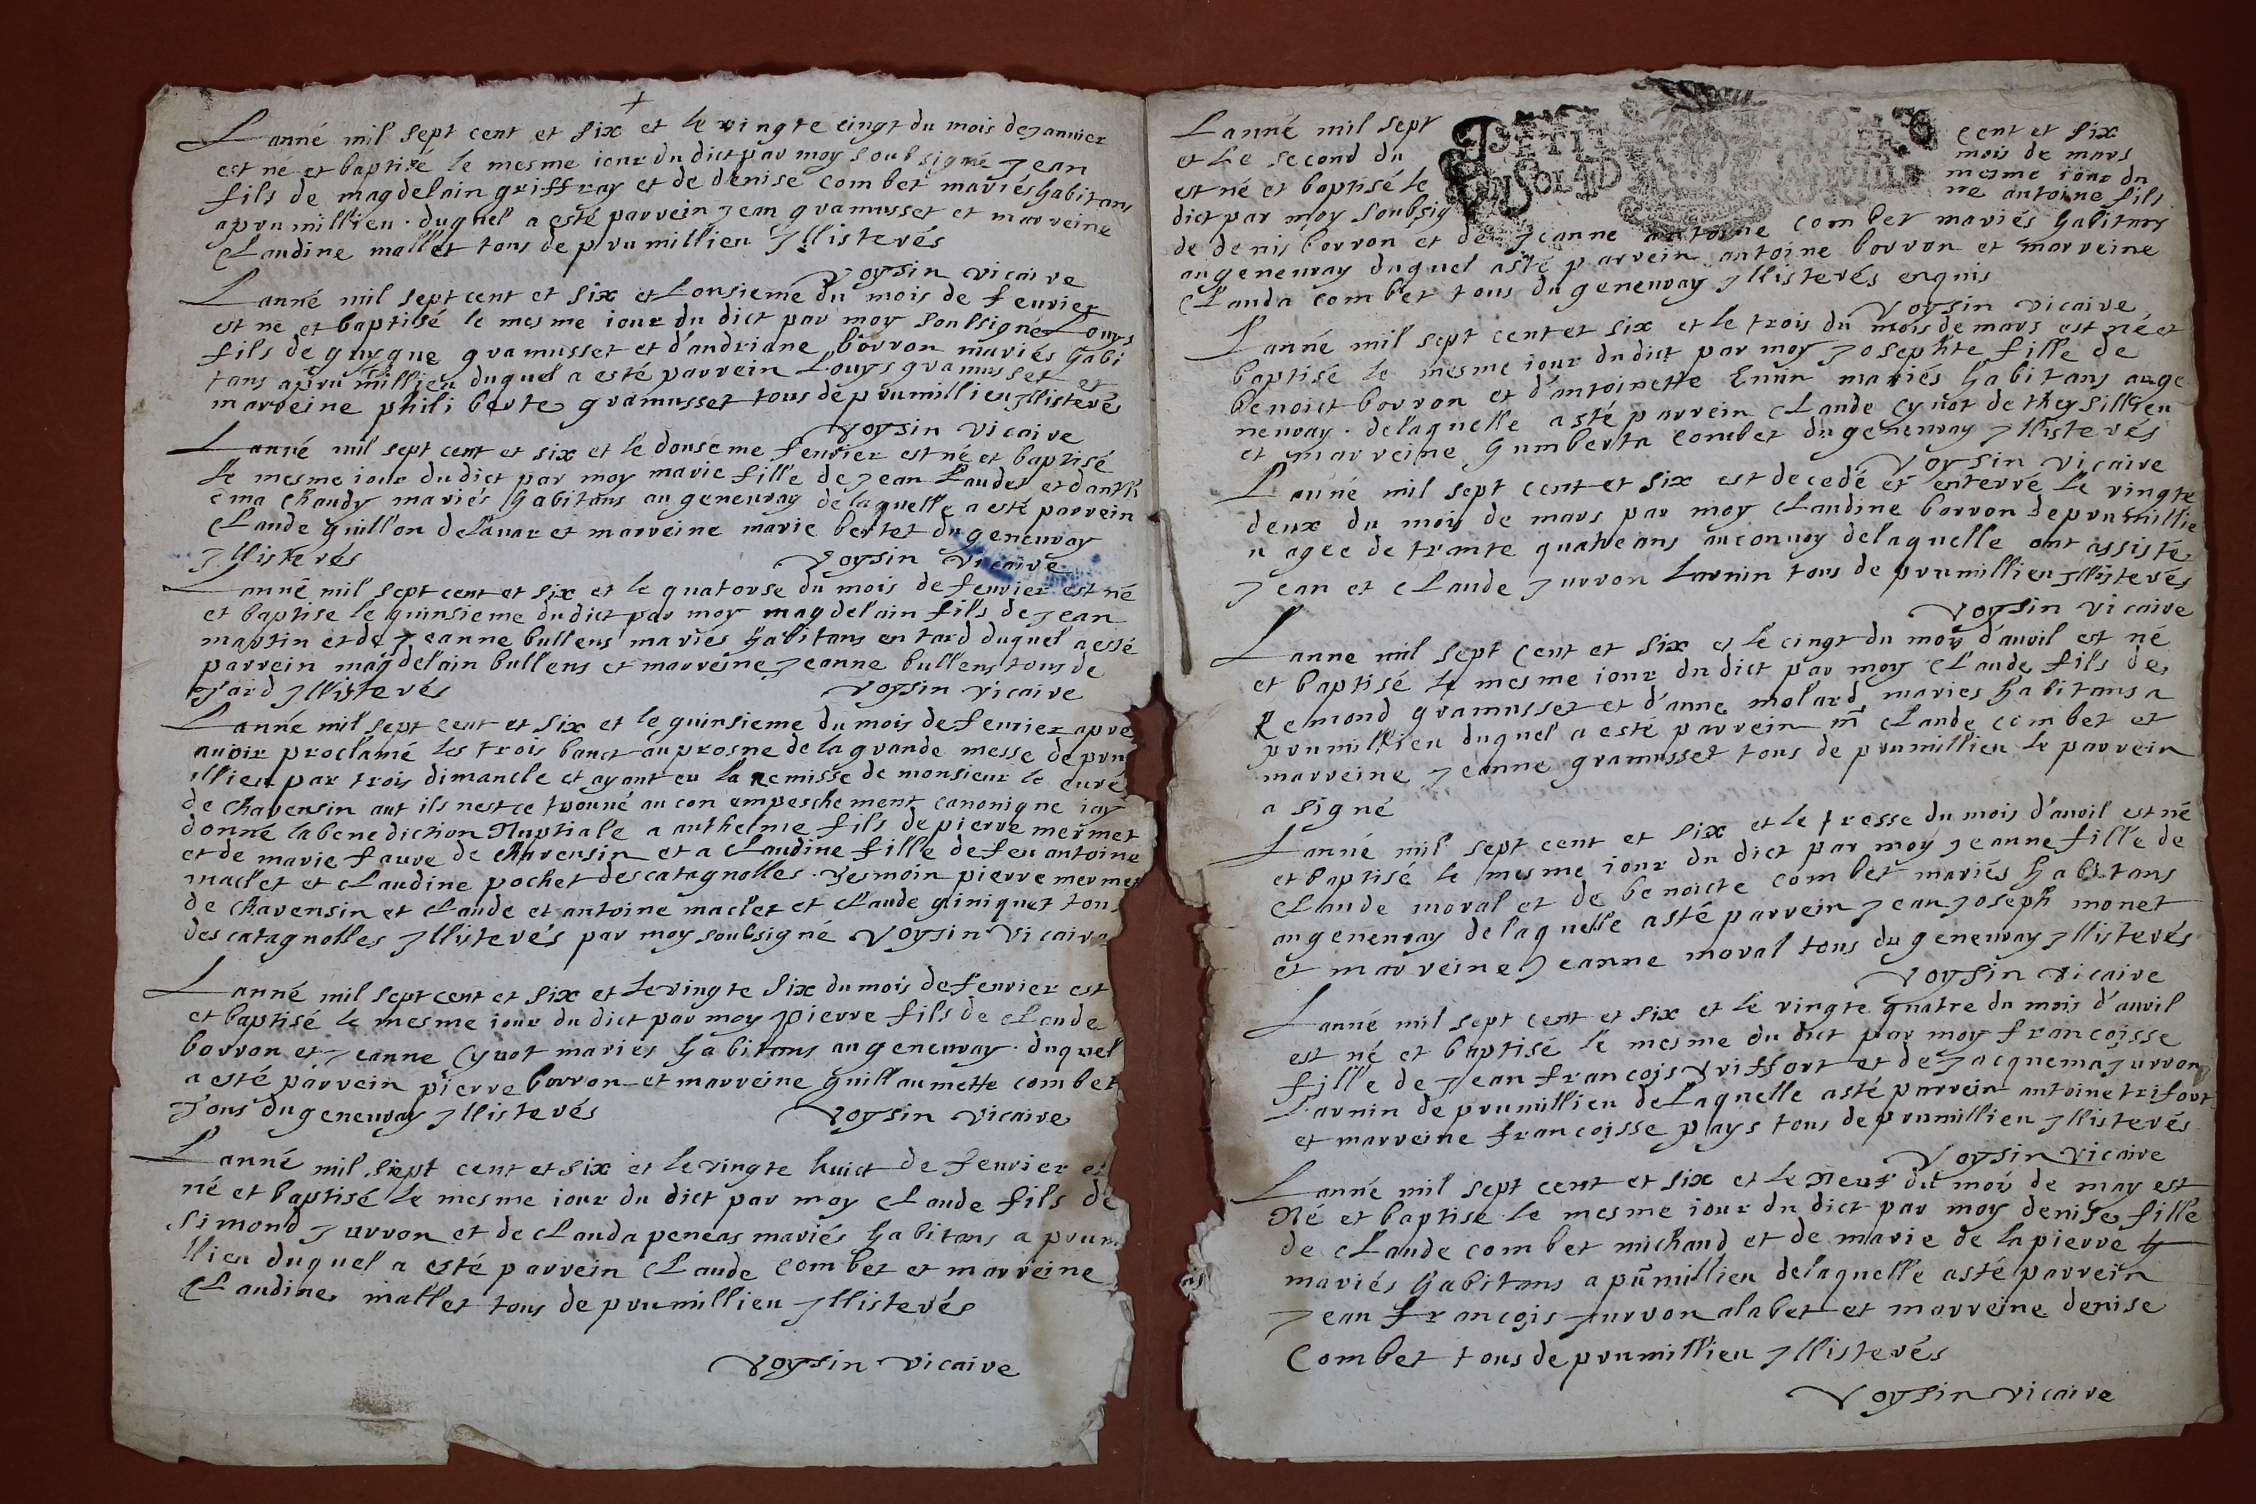 +
Lanné mil sept cent et six et le vingte cingt du mois de Janvier
est né et baptisé le mesme iour du dict par moy soubsigné Jean
fils de magdelain griffray et de denise combet mariés habitans
a prumillieu . duquel a esté parrein Jean gramusset et marreine
Claudine mallet tous de prumillieu Jllisterés
Voysin vicaire
Lanné mil sept cent et six et Lonsieme du mois de feurier
est né et baptisé le mesme iour du dict par moy soubsigné Louys
fils de guygue gramusset et d'andriane borron mariés habi
tans a prumillieu duquel a esté parrein Louys gramusset et
marreine philiberte gramusset tous de prumillieu Jllisterés
Voysin vicaire
Lanné mil sept cent et six et le douseme feurier est né et baptisé
le mesme iour du dict par moy marie fille de Jean Laudet et danth
ema Chaudy mariés habitans au geneuray de laquelle a esté parrein
Claude guillon delauar et marreine marie bertet du geneuray
Jllisterés Voysin vicaire
Lanné mil sept cent et six et le quatorse du mois de feurier est né
et baptise le quinsieme du dict par moy magdelain fils de Jean
martin et de Jeanne bullens mariés habitans en tard duquel a esté
parrein magdelain bullens et marreine Jeanne bullens tous de
tard Jllisterés Voysin vicaire
Lanné mil sept cent et six et le quinsieme du mois de feurier apre
auoir proclamé les trois banct au prosne de la grande messe de pru
illieu par trois dimancle et ayant eu la remisse de monsieur le curé
de Chavensin aut ils nest ce trouué au con empeschement canonique iay
donné la benediction Nuptiale a anthelme fils de pierre mermet
et de marie faure de Chavensin et a Claudine fille de feu antoine
maclet et Claudine pochet des catagnolles . Tesmoin pierre mermet
de Chavensin et Claude et antoine maclet et Claude giniquet tous
des catagnolles Jllisterés par moy soubsigné Voysin Vicaire
Lanné mil sept cent et six et le vingte six du mois de feurier est
et baptisé le mesme iour du dict par moy pierre fils de Claude
borron et Jeanne Cynot mariés habitans au geneuray . duquel
a esté parrein pierre borron et marreine guillaumette combet
Tous du geneuray Jllisterés Voysin vicaire
Lanné mil sept cent et six et le vingte huict de feurier e
né et baptisé le mesme iour du dict par moy Claude fils de
simond Jurron et de Clauda peneas mariés habitans a prum
llieu duquel a esté parrein Claude combet et marreine
Claudine mallet tous de prumillieu Jllisterés
Voysin vicaire
Lanné mil sept cent et six
et le second du mois de mars
est né et baptisé le mesme iour du
dict par moy soubsig ne antoine fils
PETIT PAPIER
DU SOL 4 D
de denis borron et de Jeanne antoine combet mariés habitans
au geneuray duquel asté parrein antoine borron et marreine
Clauda combet tous du geneuray Jllisterés enquis
Voysin vicaire
Lanné mil sept cent et six et le trois du mois de mars est né et
baptisé le mesme iour du dict par moy Josephte fille de
benoict borron et d'antoinette Emin mariés habitans auge
neuray . de laquelle asté parrein Claude Cynot de theysillieu
et marreine gumberta combet du geneuray Jllisterés
Voysin vicaire
Lanné mil sept cent et six est decedé et enterré le vingte
deux du mois de mars par moy Claudine borron de prumillie
u agee de trante quatre ans au conuoy de laquelle ont assisté
Jean et Claude Jurron Larnin tous de prumillieu Jllisterés
Voysin vicaire
Lanne mil sept cent et six et le cingt du mois d'auril est né
et baptisé le mesme iour du dict par moy Claude fils de
Remond gramusset et d'anne molard maries habitans a
prumillieu duquel a esté parrein m Claude combet et
marreine Jeanne gramusset tous de prumillieu le parrein
a signé
Lanné mil sept cent et six et le tresse du mois d'auril est né
et baptisé le mesme iour du dict par moy Jeanne fille de
Claude moral et de benoicte combet mariés habitans
au geneuray de laquelle asté parrein Jean Joseph monet
et marreine Jeanne moral tous du geneuray Jllisterés
Voysin vicaire
Lanné mil sept cent et six et le vingte quatre du mois d'auril
est né et baptisé le mesme du dict par moy francoisse
fille de Jean francois triffort et de Jacquema Jurron
Larnin de prumillieu de Laquelle asté parrein antoine trifort
et marreine francoisse pays tous de prumillieu Jllisterés
Voysin vicaire
Lanné mil sept cent et six et le Neuf du mois de may est
Né et baptise le mesme iour du dict par moy denise fille
de Claude combet michaud et de marie de la pierre
mariés habitans a prumillieu de laquelle asté parrein
Jean francois Jurron alabet et marreine denise
Combet tous de prumillieu Jllisterés
Voysin vicaire